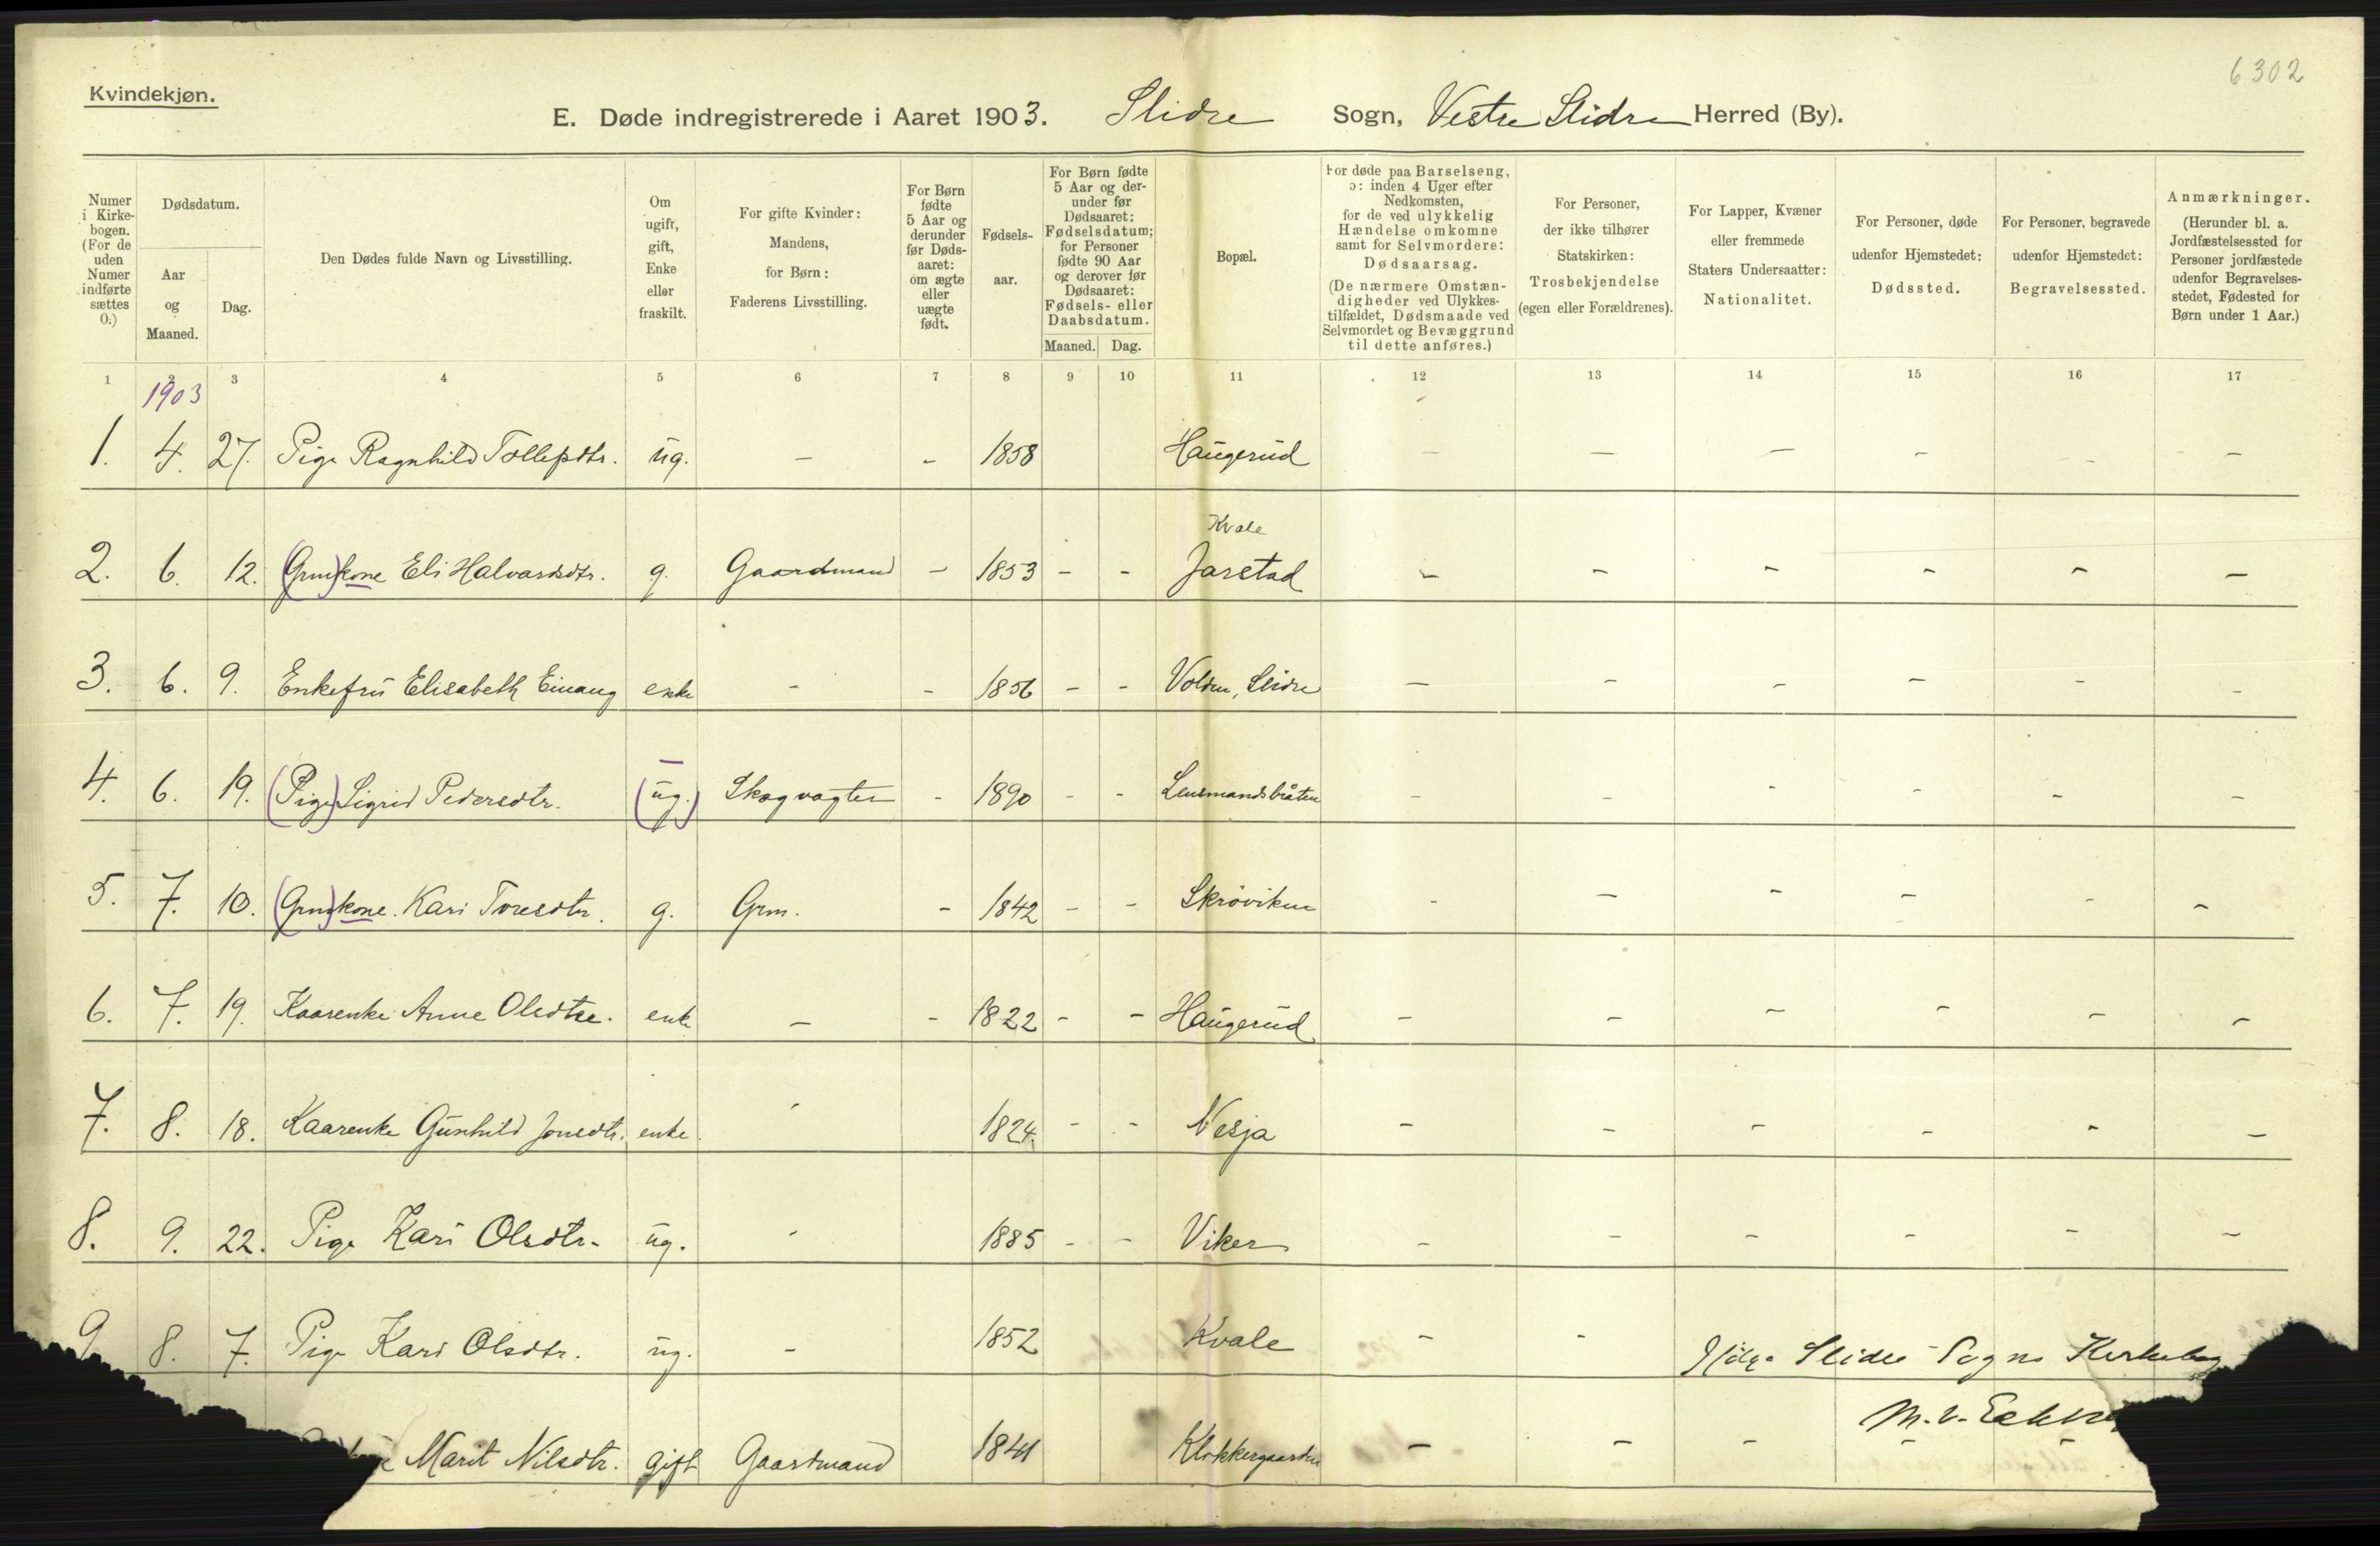 6302
Kvindekjøn.
E. Døde indregistrerede i Aaret 1903. Slidre Sogn, Vestre Slidre Herred (By).
Numer i Kirkebogen. (For de uden Numer indførte sættes 0.)
Dødsdatum.
Aar og Maaned.
Dag.
Den Dødes fulde Navn og Livsstilling.
Om ugift, gift, Enke eller fraskilt.
For gifte Kvinder: Mandens, for Børn: Faderens Livsstilling.
For Børn fødte 5 Aar og derunder før Dødsaaret: om ægte eller uægte født.
Fødselsaar.
For Børn fødte 5 Aar og derunder før Dødsaaret: Fødselsdatum; for Personer fødte 90 Aar og derover før Dødsaaret: Fødsels- eller Daabsdatum.
Maaned. Dag.
Bopæl.
For døde paa Barselseng, ɔ: inden 4 Uger efter Nedkomsten, for de ved ulykkelig Hændelse omkomne samt for Selvmordere: Dødsaarsag. (De nærmere Omstændigheder ved Ulykkestilfældet, Dødsmaade ved Selvmordet og Bevæggrund til dette anføres.)
For Personer, der ikke tilhører Statskirken: Trosbekjendelse (egen eller Forældrenes).
For Lapper, Kvæner eller fremmede Staters Undersaatter: Nationalitet.
For Personer, døde udenfor Hjemstedet: Dødssted.
For Personer, begravede udenfor Hjemstedet: Begravelsessted.
Anmærkninger. (Herunder bl. a. Jordfæstelsessted for Personer jordfæstede udenfor Begravelsesstedet, Fødested for Børn under 1 Aar.)
1 2 3 4 5 6 7 8 9 10 11 12 13 14 15 16 17
1903
1. 4. 27. Pige Ragnhild Tollepdtr. ug. - - 1858 Haugerud - - - - - -
Kvale
2. 6. 12. (Grm)kone Eli Halvardsdtr. g. Gaardmand - 1853 - - Jarstad - - - - - -
3. 6. 9. Enkefru Elisabeth Einang enke - - 1856 - - Volden, Slidre - - - - - -
4. 6. 19. (Pige) Sigrid Pedersdtr. (ug.) Skogvogter - 1890 - - Lensmandsbråten - - - - - -
5. 7. 10. (Grm)kone. Kari Toresdtr. g. Grm. - 1842 - - Skrøviken - - - - - -
6. 7. 19. Kaarenke Anne Olsdtr. enk - - 1822 - - Haugerud - - - - - -
7. 8. 18. Kaarenke Gunhild Jonsdtr. enke - 1824. - - Nesja - - - - - -
8. 9. 22. Pige Kari Olsdtr. ug. - 1885 - - Viker - - - - - -
9 8. 7. Pige Kari Olsdtr. ug. - 1852 Kvale - - Ifølge Slidre Sogns Kirkebog
M. V.
Marit Nilsdtr. gift Gaardmand 1841 Klokkergaarden - - - - -